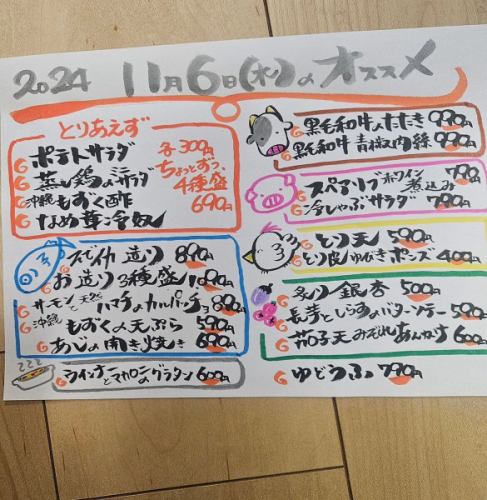 2024 11月6日(水)のオススメ
とりあえず
ポテトサラダ
蒸し鶏のミニサラダ
沖縄もずく酢
なめ茸冷奴
各300円
ちょっとずつ
4種盛
690円
スミイカ造り 890円
お造り3種盛 1090円
サーモンと天然ハマチのカルパッチョ 890円
沖縄もずくの天ぷら 590円
あじの開き焼き 690円
ウインナーとマカロニのグラタン 600円
黒毛和牛のたたき 990円
黒毛和牛 青椒肉絲 990円
スペアリブ 赤ワイン煮込み 790円
冷しゃぶサラダ 790円
とり天 590円
とり皮ゆびきポンズ 400円
炙り銀杏 500円
長芋としらすのバターソテー 590円
茄子天みぞれあんかけ 600円
ゆどうふ 790円